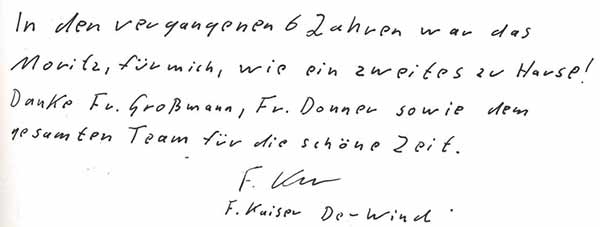 In den vergangenen 6 Jahren war das
Moritz, für mich, wie ein zweites zu Hause!
Danke Fr. Großmann, Fr. Donner sowie dem
gesamten Team für die schöne Zeit.
F.
F. Kaiser De-Wind